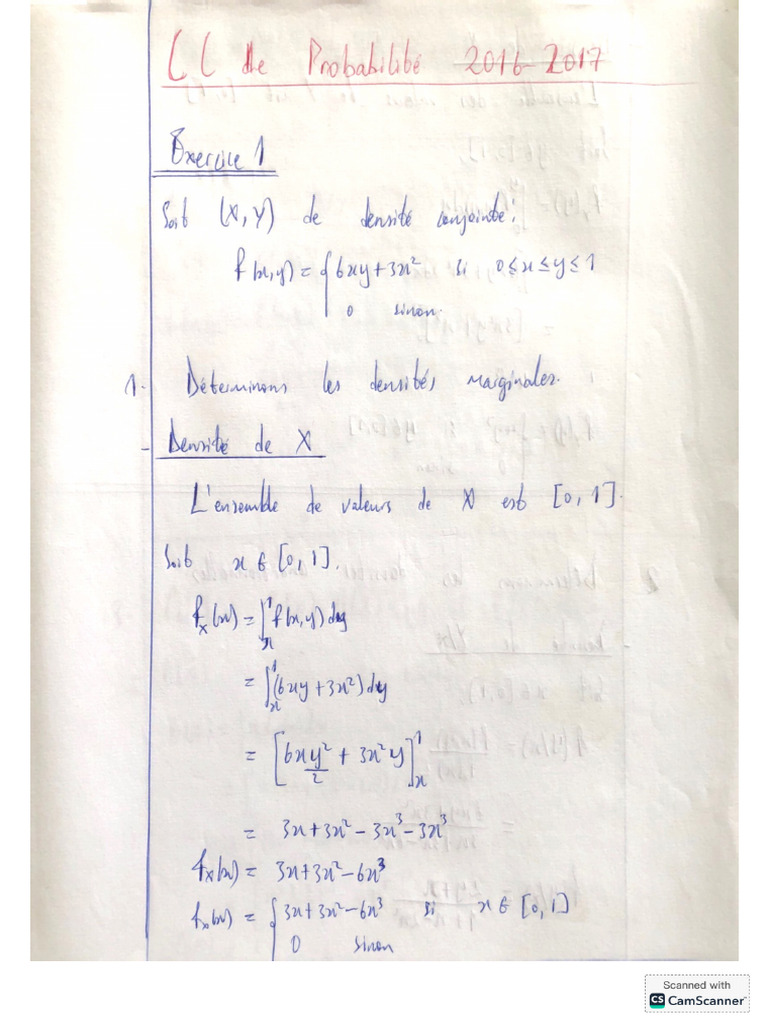 CC de Probabilité 2016-2017
Exercice 1
Soit (X,Y) de densité conjointe:
f(x,y) = { 6xy+3x² si 0≤x≤y≤1
0 sinon.
1. Déterminons les densités marginales.
- Densité de X
L'ensemble de valeurs de X est [0,1].
Soit x∈[0,1].
f_X(x) = ∫_x^1 f(x,y) dy
= ∫_x^1 (6xy+3x²) dy
= [6xy²/2 + 3x²y]_x^1
= 3x+3x²-3x³-3x³
f_X(x) = 3x+3x²-6x³
f_X(x) = { 3x+3x²-6x³ si x∈[0,1]
0 sinon
Scanned with
CS CamScanner